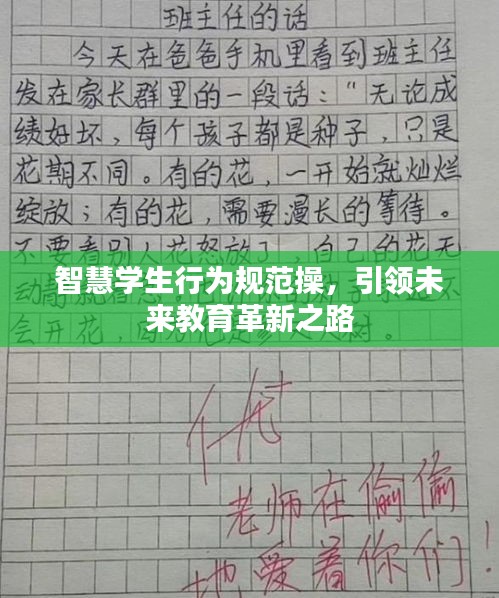 班主任的话
今天在爸爸手机里看到班主任
发在家长群里的一段话：“无论成
绩好坏，每个孩子都是种子，只是
花期不同。有的花，一开始就灿烂
绽放；有的花，需要漫长的等待。
不要看别人花怒放了，自己的花无
智慧学生行为规范操，引领未
来教育革新之路
会开花，
树。
优+
老师在偷偷
地爱着你们！